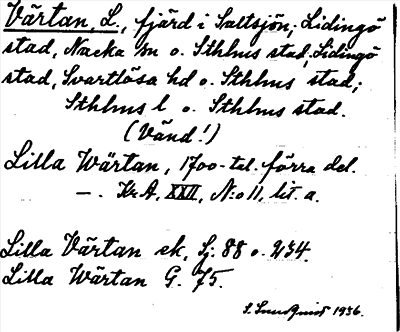 Värtan, L., fjärd i Saltsjön; Lidingö
stad, Nacka sn o. Sthlms stad, Lidingö
stad, Svartlösa hd o. Sthlms stad;
Sthlms l o. Sthlms stad.
(Vänd!)
Lilla Wärtan, 1700-tal. förra del.
—. Kr.A, XXII, N:o 11, lit. a.
Lilla Värtan sk, Sj. 88 o. 234.
Lilla Wärtan G. 75.
1936.